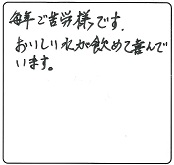 毎年ご苦労様です.
おいしい水が飲めて喜んで
います。